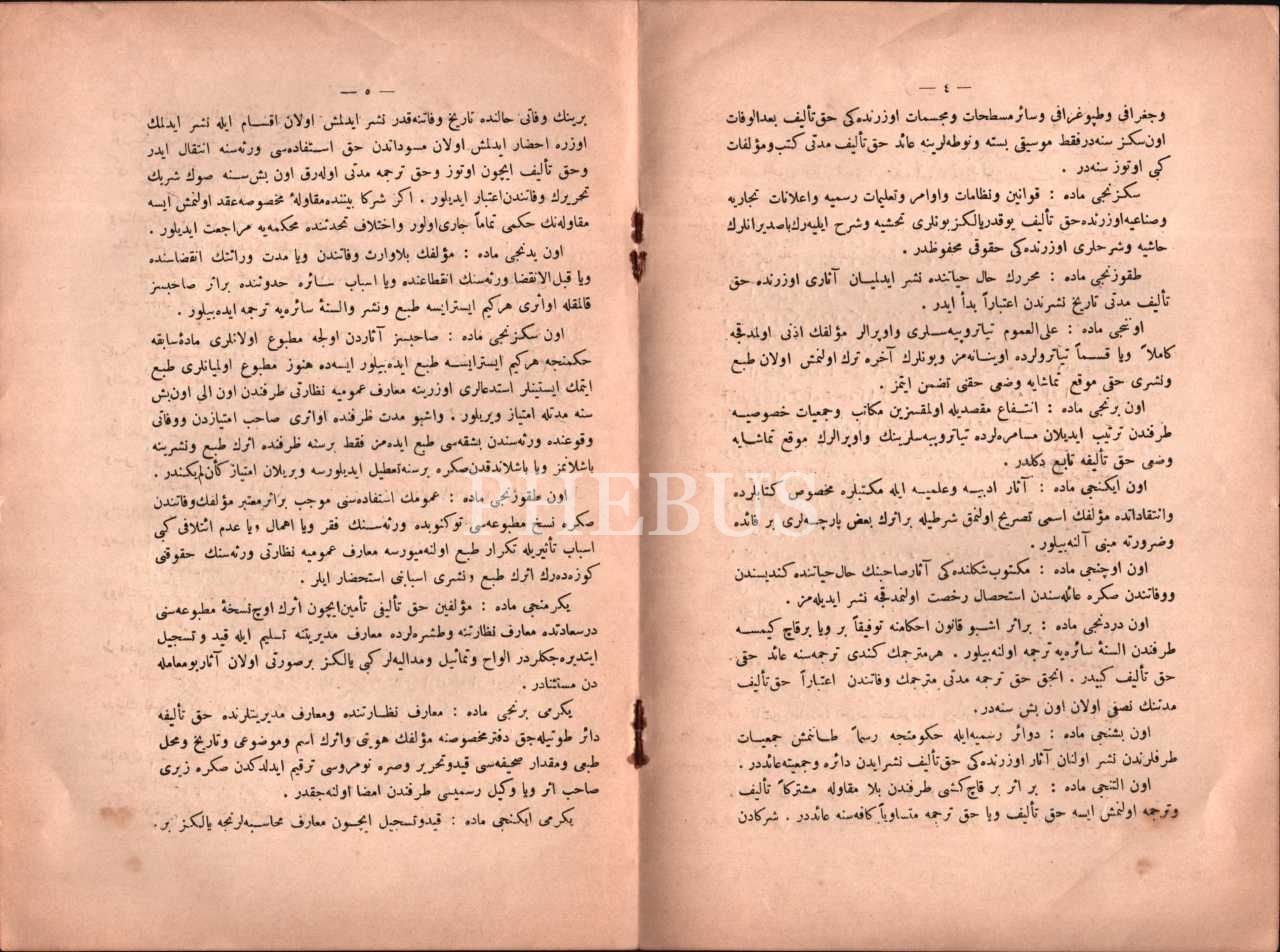 — ٤ —
وجغرافی وطپوغرافی وسائر مسطحات ومجسمات اوزرنده‌كی حق تألیف بعدالوفات
اون سكز سنه‌در فقط موسیقی بسته و نوطه‌لرینه عائد حق تألیف مدتی كتب و مؤلفات
كبی اوتوز سنه‌در .
سكزنجی ماده : قوانین ونظامات واوامر وتعلیمات رسمیه واعلانات تجاریه
وصناعیه اوزرنده حق تألیف یوقدر یالكز بونلری تحشیه و شرح ایلیه‌رك باصدیرانلرك
حاشیه وشرحلری اوزرنده‌كی حقوقی محفوظدر.
طقوزنجی ماده : محررك حال حیاتنده نشر ایدلمیان آثاری اوزرنده حق
تألیف مدتی تاریخ نشرندن اعتباراً بدأ ایدر.
اوننجی ماده : علی‌العموم تیاتروپیه‌سلری واوپرالر مؤلفك اذنی اولمدقجه
كاملاً ویا قسماً تیاترولرده اوینانه‌مز وبونلرك آخره ترك اولنمش اولان طبع
ونشری حتی موقع تماشایه وضعی حقنی تضمن ایتمز .
اون برنجی ماده : انتفاع مقصدیله اولمقسزین مكاتب وجمعیات خصوصیه
طرفندن ترتیب ایدیلان مسامره‌لرده تیاتروپیه‌سلرینك واوپرالرك موقع تماشایه
وضعی حق تألیفه تابع دكلدر .
اون ایكنجی ماده : آثار ادبیه وعلمیه ایله مكتبلره مخصوص كتابلرده
وانتقاداتده مؤلفك اسمی تصریح اولنمق شرطیله براثرك بعض پارچه‌لری بر فائده
وضرورته مبنی آلنه‌بیلور .
اون اوچنجی ماده : مكتوب شكلنده‌كی آثار صاحبنك حال حیاتنده كندیسندن
ووفاتندن صكره عائله‌سندن استحصال رخصت اولنمدقجه نشر ایدیله‌مز .
اون دردنجی ماده : براثر اشبو قانون احكامنه توفیقاً بر ویا برقاچ كیمسه
طرفندن السنهٔ سائره‌یه ترجمه اولنه‌بیلور . هرمترجمك كندی ترجمه‌سنه عائد حقی
حق تألیف كبیدر . انجق حق ترجمه مدتی مترجمك وفاتندن اعتباراً حق تألیف
مدتنك نصفی اولان اون بش سنه‌در .
اون بشنجی ماده : دوائر رسمیه‌ایله حكومتجه رسماً طانمش جمعیات
طرفلرندن نشر اولنان آثار اوزرنده‌كی حق تألیف نشرایدن دائره وجمعیته‌عائددر .
اون التنجی ماده : بر اثر بر قاچ كشی طرفندن بلا مقاوله مشتركاً تألیف
وترجمه اولنمش ایسه حق تألیف ویا حق ترجمه متساویاً كافه‌سنه عائددر . شركادن
— ٥ —
برینك وفاتی حالنده تاریخ وفاتنه‌قدر نشر ایدلمش اولان اقسام ایله نشر ایدلمك
اوزره احضار ایدلمش اولان مسوداتدن حق استفاده‌سی ورثه‌سنه انتقال ایدر
وحق تألیف ایچون اوتوز وحق ترجمه مدتی اوله‌رق اون بش سنه صوك شریك
تحریرك وفاتندن‌اعتبار ایدیلور . اكر شركا بیننده‌مقاولهٔ مخصوصه‌عقد اولنمش ایسه
مقاوله‌نك حكمی تماماً جاری‌اولور واختلاف تحدثنده محكمه‌یه مراجعت ایدیلور .
اون یدنجی ماده : مؤلفك بلاوارث وفاتندن ویا مدت وراثتك انقضاسنده
ویا قبل‌الانقضا ورثه‌سنك انقطاعنده ویا اسباب سائره حدوثنده براثر صاحبسز
قالمقله اواثری هركیم ایسترایسه طبع ونشر والسنهٔ سائره‌یه ترجمه ایده‌بیلور .
اون سكزنجی ماده : صاحبسز آثاردن اولجه مطبوع اولانلری مادهٔ سابقه
حكمنجه هركیم ایسترایسه طبع ایده‌بیلور ایسه‌ده هنوز مطبوع اولمیانلری طبع
ایتمك ایستینلر استدعالری اوزرینه معارف عمومیه نظارتی طرفندن اون الی اون‌بش
سنه مدتله امتیاز ویریلور . واشبو مدت ظرفنده اواثری صاحب امتیازدن ووفاتی
وقوعنده ورثه‌سندن بشقه‌سی طبع ایده‌مز فقط برسنه ظرفنده اثرك طبع ونشرینه
باشلانمز ویا باشلاندقدن‌صكره برسنه‌تعطیل ایدیلورسه ویریلان امتیاز كأن‌لم‌یكندر .
اون طقوزنجی ماده : عمومك استفاده‌سنی موجب براثرمعتبر مؤلفك‌وفاتندن
صكره نسخ مطبوعه‌سی توكنوبده ورثه‌سنك فقر ویا اهمال ویا عدم ائتلافی كبی
اسباب تأثیریله تكرار طبع اولنه‌میورسه معارف عمومیه نظارتی ورثه‌سنك حقوقنی
كوزه‌ده‌رك اثرك طبع ونشری اسبابنی استحضار ایلر .
یكرمنجی ماده : مؤلفین حق تألیفی تأمین‌ایچون اثرك اوچ‌نسخهٔ مطبوعه‌سنی
درسعادتده معارف نظارتنه وطشره‌لرده معارف مدیریتنه تسلیم ایله قید وتسجیل
ایتدیره‌جكلردر الواح وتماثیل ومدالیه‌لر كبی یالكز برصورتی اولان آثاربومعامله
دن مستثنادر .
یكرمی برنجی ماده : معارف نظارتنده ومعارف مدیریتلرنده حق تألیفه
دائر طوتیله‌جق دفترمخصوصنه مؤلفك هویتی واثرك اسم وموضوعی وتاریخ ومحل
طبعی ومقدار صحیفه‌سی قیدوتحریر وصره نومروسی ترقیم ایدلدكدن صكره زیری
صاحب اثر ویا وكیل رسمیسی طرفندن امضا اولنه‌جقدر .
یكرمی ایكنجی ماده : قیدوتسجیل ایچون معارف محاسبه‌لرنجه یالكز بر.
PHEBUS